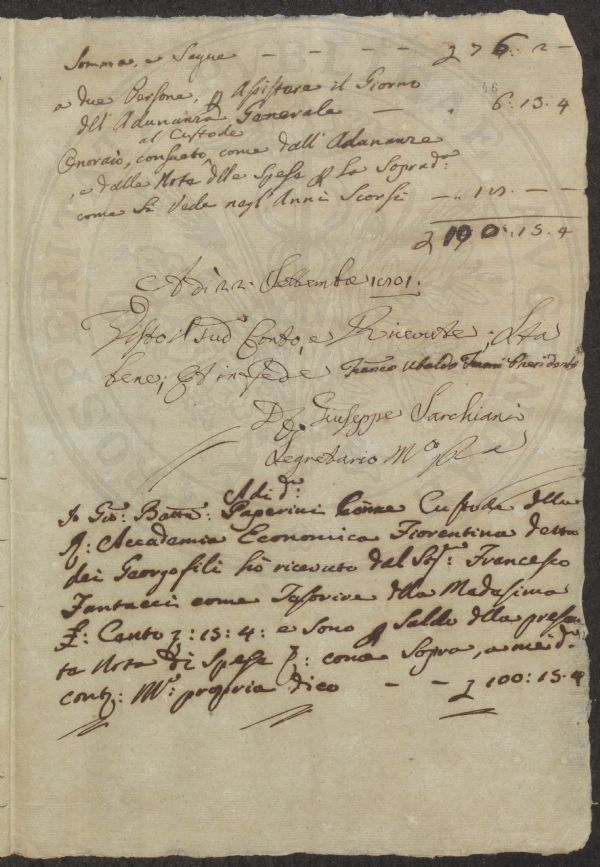 Somma, e Segue — — — — £ 76: 2 —
a due Persone, p Assistere il Giorno
dell'Adunanza Generale — . 6: 13: 4
al Custode
Onorario, consueto, come dall'Adunanze
, e dalle Note delle Spese p la Soprad.a
come Si Vede negl'Anni Scorsi —
100: 15. 4
A dì 22. Settembre 1801.
Visto il Sud.o Conto, e Ricevute, Sta
bene; Et in fede Franco Ubaldo Presidente
D. Giuseppe Sarchiani
Segretario M.o
A dì d.o
Io Gio: Batta: Paperini come Custode della
R: Accademia Economica Fiorentina detta
dei Georgofili hò ricevuto dal Sig.r Francesco
Fantacci come Tesoriere della Medesima
£: Cento 13: 4: e Sono p Saldo della presen
te Nota di Spese come Sopra, a me d.o
cont: M.o propria dico — — £ 100: 15. 4